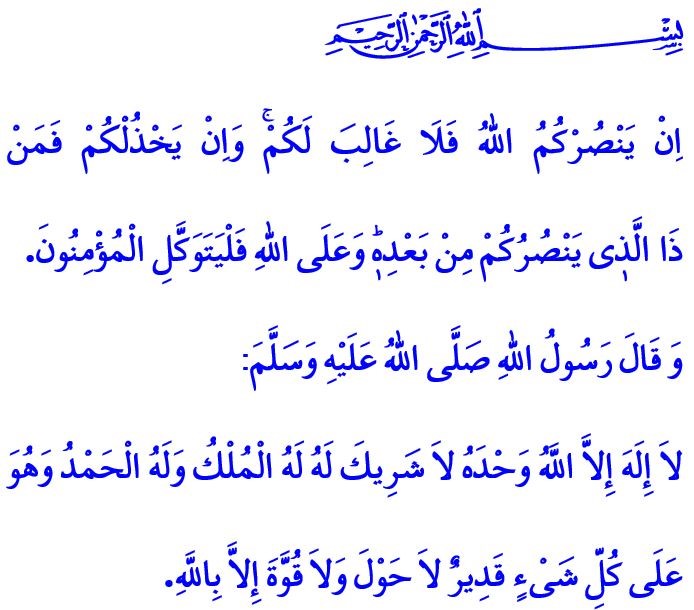 بِسْمِ اللهِ الرَّحْمٰنِ الرَّحِيمِ
اِنْ يَنْصُرْكُمُ اللهُ فَلَا غَالِبَ لَكُمْۚ وَاِنْ يَخْذُلْكُمْ فَمَنْ
ذَا الَّذ۪ى يَنْصُرُكُمْ مِنْ بَعْدِه۪ۜ وَعَلَى اللهِ فَلْيَتَوَكَّلِ الْمُؤْمِنُونَ.
وَ قَالَ رَسُولُ اللهِ صَلَّى اللهُ عَلَيْهِ وَسَلَّمَ:
لاَ إِلَهَ إِلاَّ اللَّهُ وَحْدَهُ لاَ شَرِيكَ لَهُ لَهُ الْمُلْكُ وَلَهُ الْحَمْدُ وَهُوَ
عَلَى كُلِّ شَىْءٍ قَدِيرٌ لاَ حَوْلَ وَلاَ قُوَّةَ إِلاَّ بِاللَّهِ.